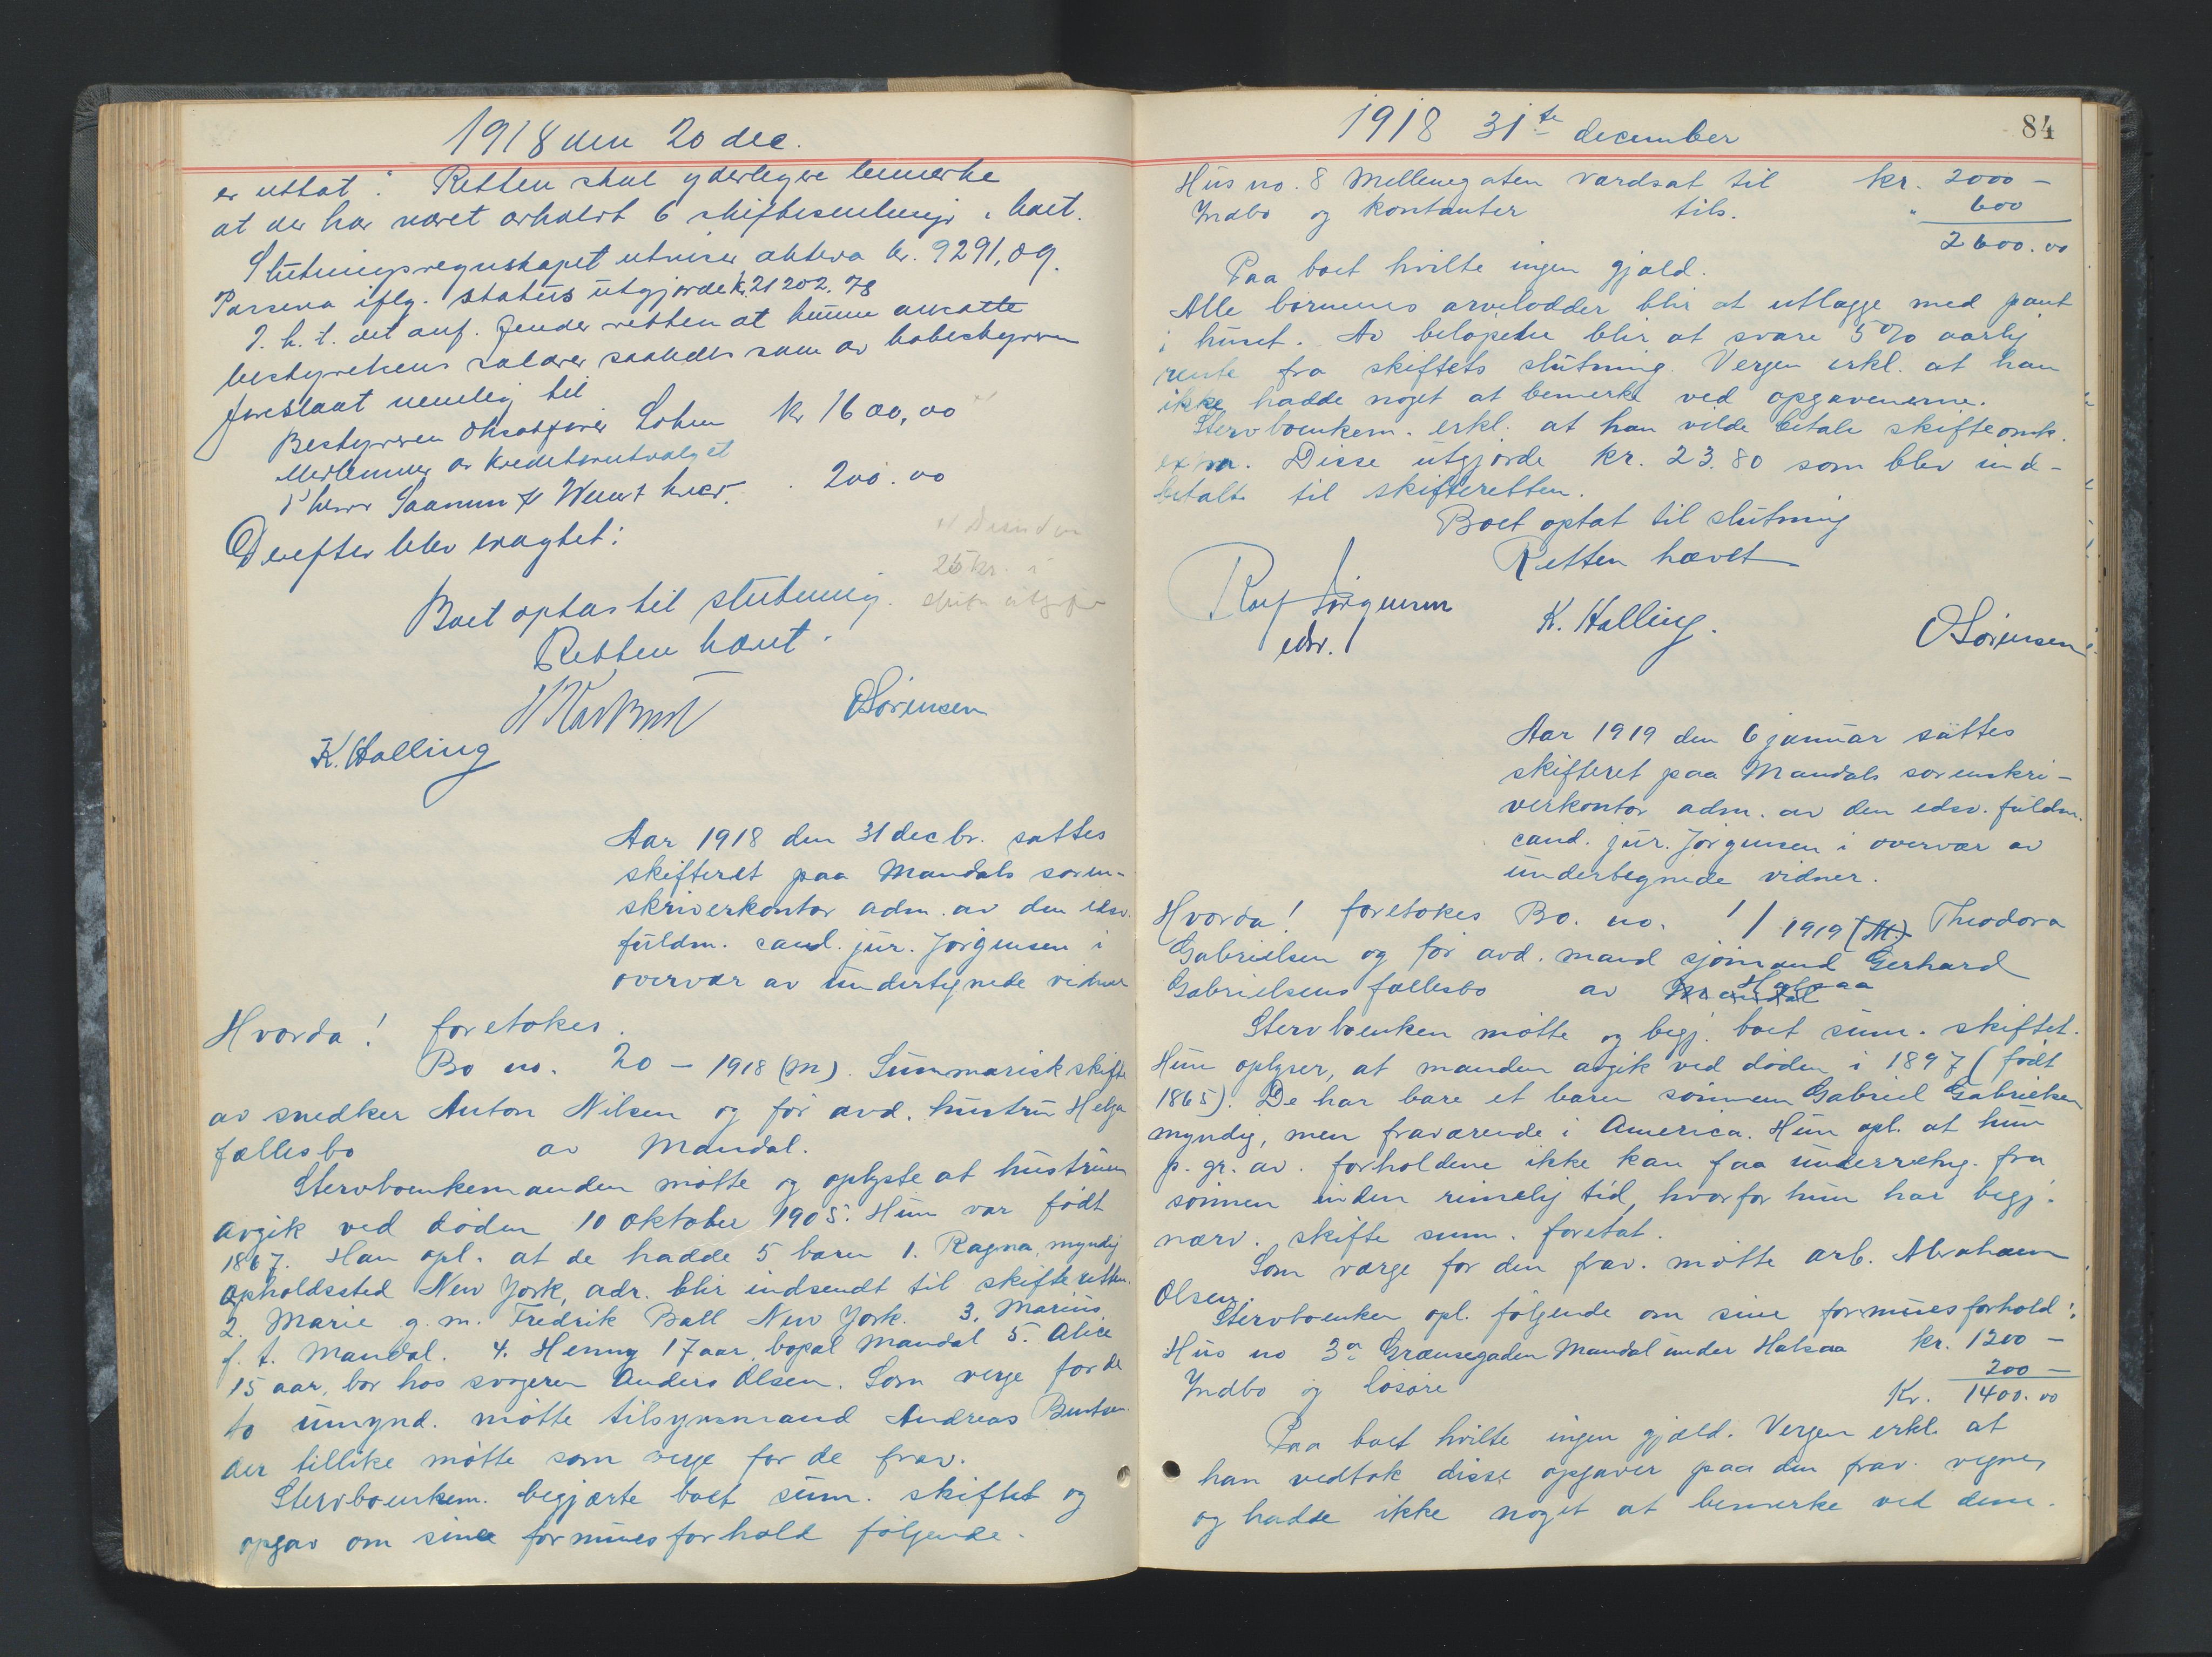 1918 den 20 dec.
er uttat". Retten skal yderligere bemerke
at der har været avholdt 6 skiftesamlinger i boet.
Slutningsregnskapet utviser aktiva kr. 9291,09.
Passiva iflg. status utgjorde kr. 21202.78
I. h. t. det anf. finder retten at kunne ansætte
bestyrelsens salærer saaledes som av bobestyreren
foreslaat nemlig til
Bestyreren Lohm kr 1600,00 x)
Medlemmer av Kreditorutvalget
Saanum & hver. . 200.00
Derefter blev eragtet:
x) Desuden
25 kr. i
Boet optas til slutning.
Retten hævet.
OSörensen
K. Halling
Aar 1918 den 31 decbr. sattes
skifteret paa Mandals soren-
skriverkontor adm. av den edsv.
fuldm. cand. jur. Jörgensen i
overvær av undertegnede vidner
Hvorda! foretokes.
Bo no. 20 – 1918 (M). Summarisk skifte
av snedker Anton Nilsen og før avd. hustru Helga
fællesbo av Mandal.
Stervboenkemanden møtte og oplyste at hustruen
avgik ved døden 10 oktober 1905. Hun var født
1867. Han opl. at de hadde 5 barn 1. Ragna, myndig
opholdssted New York, adr. blir indsendt til skifteretten.
2. Marie g. m. Fredrik Ball New York. 3. Marius
f. t. Mandal. 4. Henny 17 aar, bopæl Mandal 5. Alice
15 aar, bor hos svogeren Anders Olsen. Som verge for de
to umynd. møtte tilsynsmand Andreas Bentsen
der tillike møtte som verge for de frav.
Stervboenkem. begjærte boet sum. skiftet og
opgav om sine formuesforhold følgende.
1918 31te december
84
Hus no. 8 Mellemgaten værdsat til kr. 2000 –
Indbo og kontanter tils. " 600
2600.00
Paa boet hvilte ingen gjæld.
Alle børnenes arvelodder blir at utlægge med pant
i huset. Av beløpene blir at svare 5% aarlig
rente fra skiftets slutning. Vergen erkl. at han
ikke hadde noget at bemerke ved opgaverne.
Stervboenkem. erkl. at han vilde betale skifteomk.
extra. Disse utgjorde kr. 23.80 som blev ind-
betalt til skifteretten.
Boet optat til slutning
Retten hævet
Jörgensen
edsv.
K. Halling.
OSörensen
Aar 1919 den 6 januar sattes
skifteret paa Mandals sorenskri-
verkontor adm. av den edsv. fuldm.
cand. jur. Jörgensen i overvær av
undertegnede vidner.
Hvorda! foretokes Bo. no. 1/1919 (M.) Theodora
Gabrielsen og før avd. mand sjømand Gerhard
Gabrielsens fællesbo av Mandal Halsaa
Stervboenken møtte og begj. boet sum. skiftet.
Hun oplyser, at manden avgik ved døden i 1897 (født
1865). De har bare et barn sønnen Gabriel Gabrielsen
myndig, men fraværende i America. Hun opl. at hun
p. gr. av. forholdene ikke kan faa underretng. fra
sønnen inden rimelig tid, hvorfor hun har begj.
nærv. skifte sum. foretat.
Som værge for den frav. møtte arb. Abraham
Olsen.
Stervboenken opl. følgende om sine formuesforhold:
Hus no 3a Grænsegaden Mandal under Halsaa kr. 1200 –
Indbo og løsøre 200 –
Kr. 1400.00
Paa boet hvilte ingen gjæld. Vergen erkl. at
han vedtok disse opgaver paa den frav. vegne,
og hadde ikke noget at bemerke ved dem.